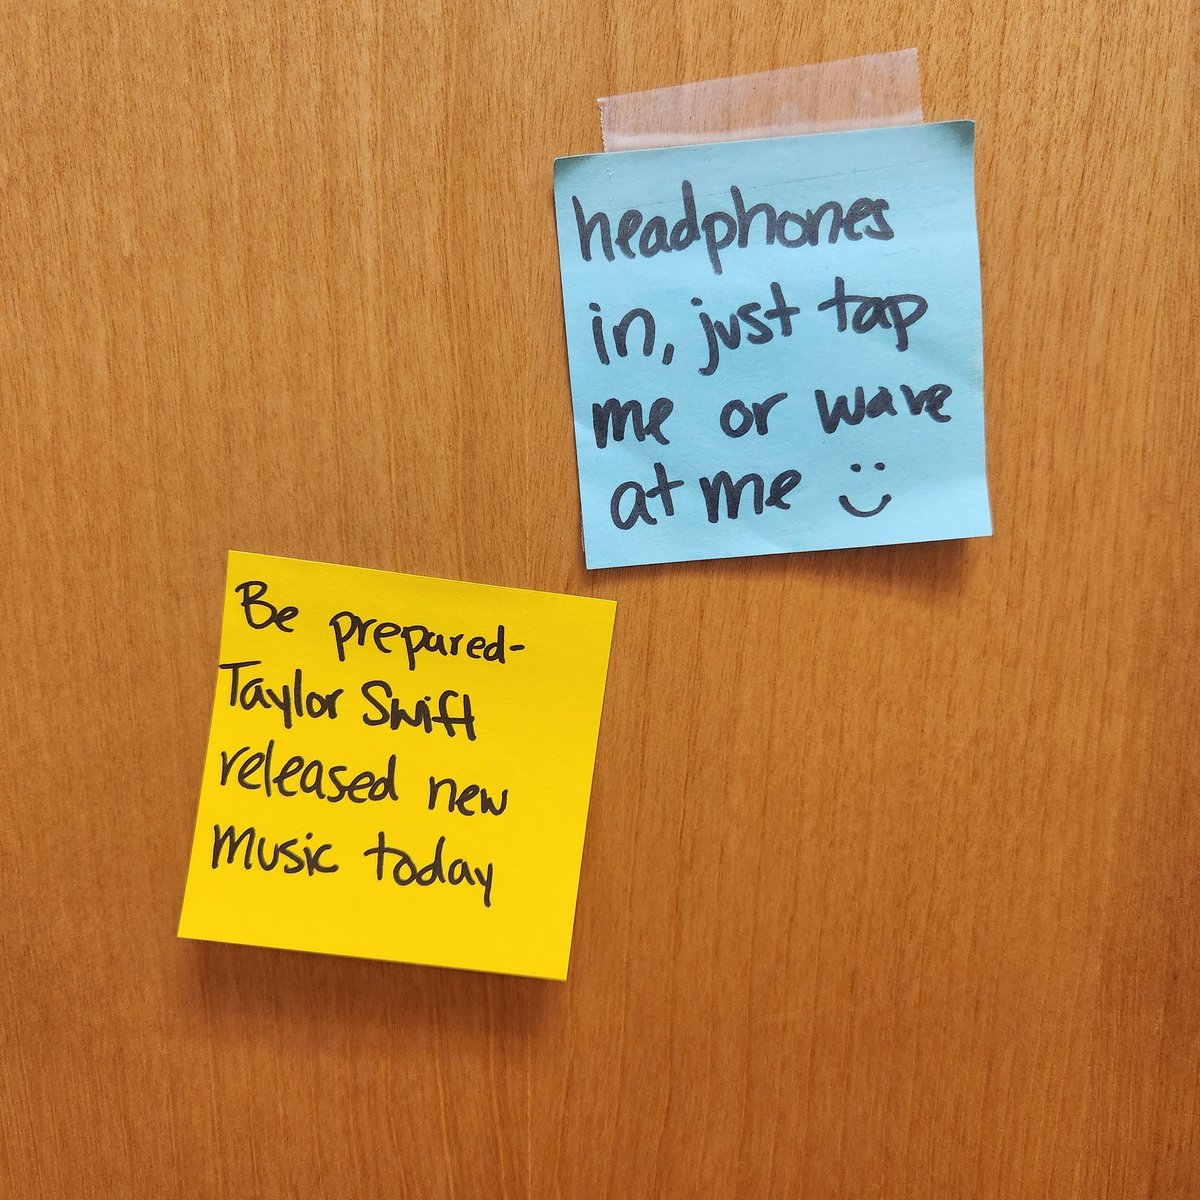 headphones
in, just tap
me or wave
at me
Be prepared-
Taylor Swift
released new
music today